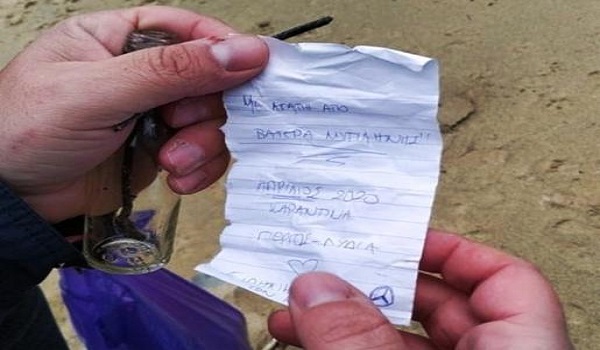 Με ΑΓΑΠΗ ΑΠΟ
ΒΑΤΕΡΑ ΜΥΤΙΛΗΝΗΣ!!
ΑΠΡΙΛΙΟΣ 2020
ΚΑΡΑΝΤΙΝΑ
ΛΥΔΙΑ